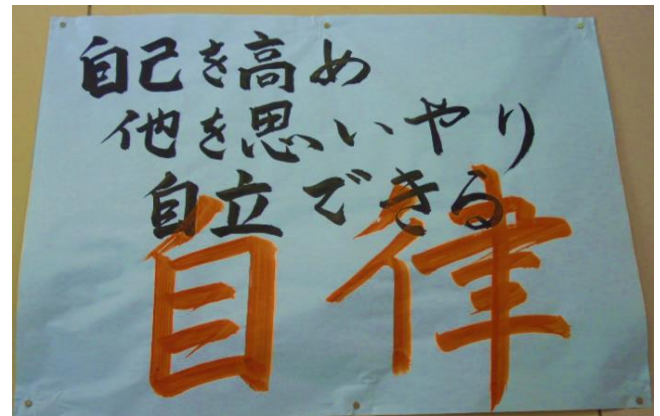 自己を高め
他を思いやり
自立できる
自律